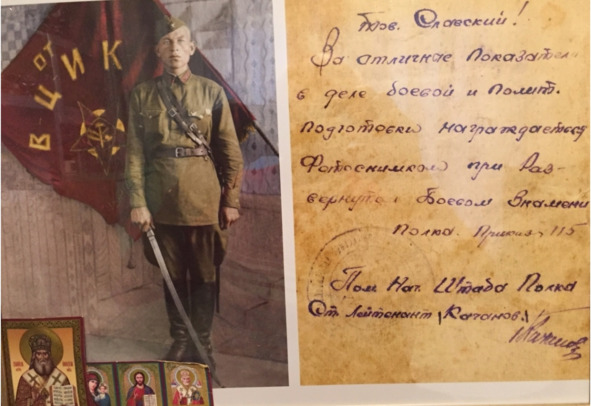 от
ВЦИК
Тов. Славский!
За отличные показатели
в деле боевой и полит.
подготовки награждается
Фотоснимком при Раз-
вернутом Боевом Знамени
Полка. Приказ 115
Пом Нач. Штаба Полка
Ст. Лейтенант (Качанов)